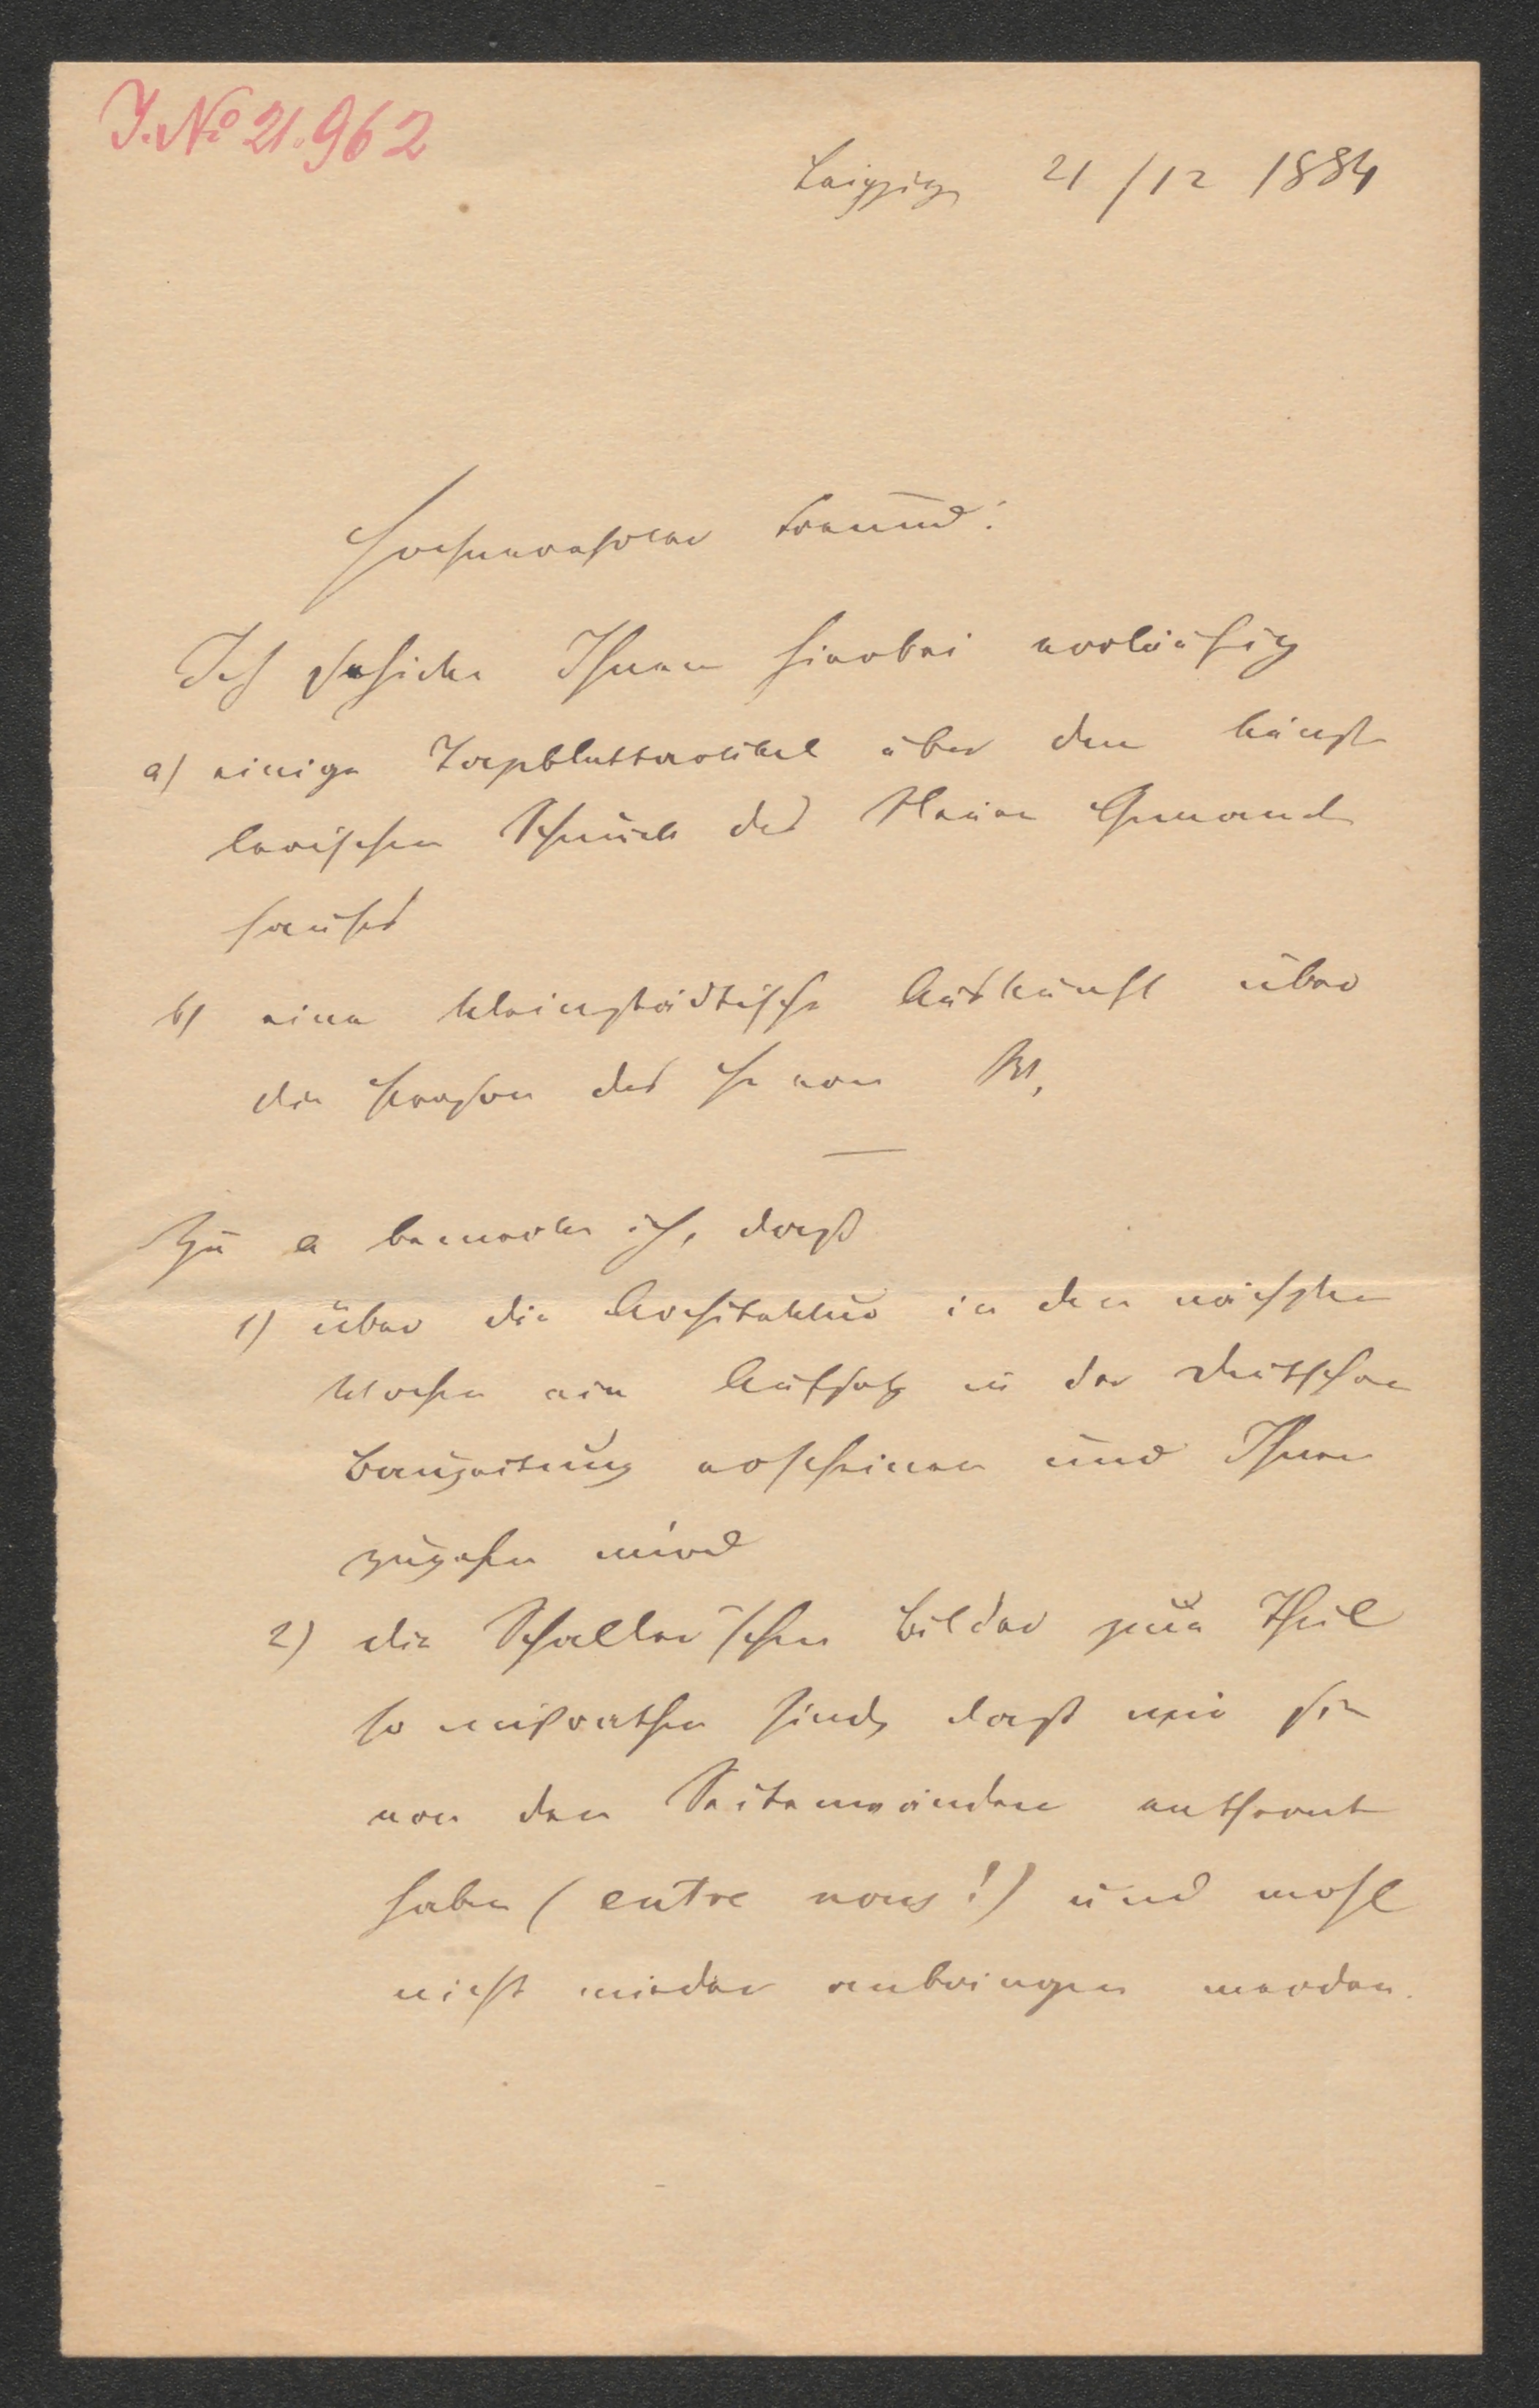 J. No 21.962
Leipzig 21/12 1884
Hochverehrter Freund!
Ich schicke Ihnen hierbei vorläufig
a) einige Tageblattartikel über den künst
lerischen Schmuck des Neuen Gewand
hauses
b) eine kleinstädtische Auskunft über
die Person des H von
Zu a bemerke ich, daß
1) über die Architektur in den nächsten
Wochen ein Aufsatz in der Deutschen
Bauzeitung erscheinen und Ihnen
zugehen wird
2) die Schaller'schen Bilder zum Theil
so mißrathen sind, daß wir sie
von den Seitenwänden entfernt
haben (entre nous!) und wohl
nicht wieder anbringen werden.